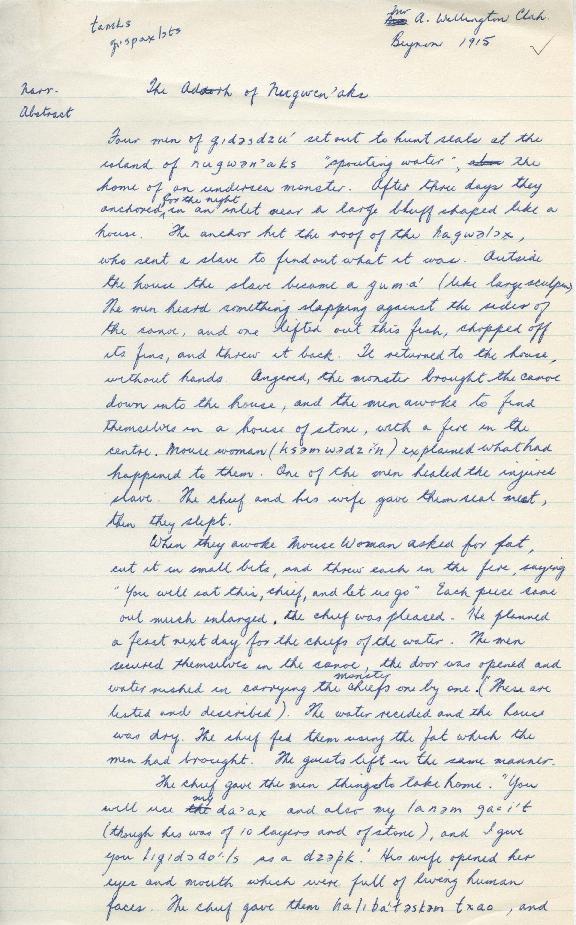 tamks
gispaxlɔts
Mr A. Wellington Clah.
Beynon 1915
✓
narr.
Abstract
The Adaorh of Nugwen'aks
Four men of gɪdəsdzu' set out to hunt seals at the
island of nugwən'aks "spouting water", the
home of an undersea monster. After three days they
anchored, for the night in an inlet near a large bluff shaped like a
house. The anchor hit the roof of the nagwəlɔx,
who sent a slave to find out what it was. Outside
the house the slave became a guma' (like large sculpin)
The men heard something slapping against the sides of
the canoe, and one lifted out this fish, chopped off
its fins, and threw it back. It returned to the house,
without hands. Angered, the monster brought the canoe
down into the house, and the men awoke to find
themselves in a house of stone, with a fire in the
centre. Mouse woman (ksəmwədzi'n) explained what had
happened to them. One of the men healed the injured
slave. The chief and his wife gave them seal meat,
then they slept.
When they awoke Mouse Woman asked for fat,
cut it in small bits, and threw each in the fire, saying
"You will eat this, chief, and let us go" Each piece came
out much enlarged, the chief was pleased. He planned
a feast next day, for the chiefs of the water. The men
secured themselves in the canoe, the door was opened and
water rushed in carrying the monster chiefs one by one. (These are
listed and described). The water receded and the house
was dry. The chief fed them using the fat which the
men had brought. The guests left in the same manner.
The chief gave the men things to take home. "You
will use my daɔax and also my lanəm gai't
(though his was of 10 layers and of stone), and I give
you ligidədo'ls as a dzəpk." His wife opened her
eyes and mouth which were full of living human
faces. The chief gave them haliba'təskəm txao, and